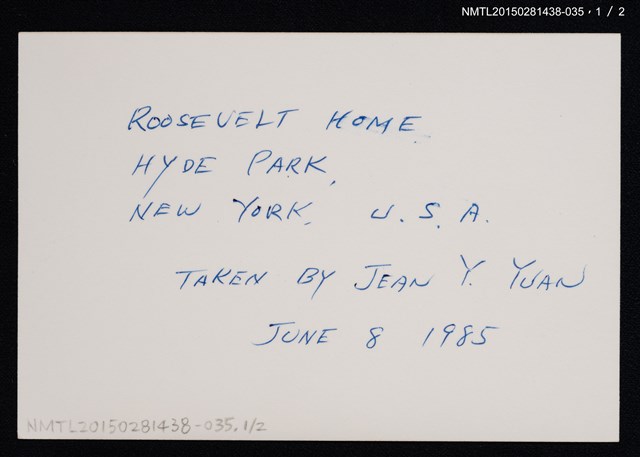 NMTL20150281438-035，1 / 2
ROOSEVELT HOME
HYDE PARK,
NEW YORK, U.S.A.
TAKEN BY JEAN Y. YUAN
JUNE 8 1985
NMTL20150281438-035.1/2